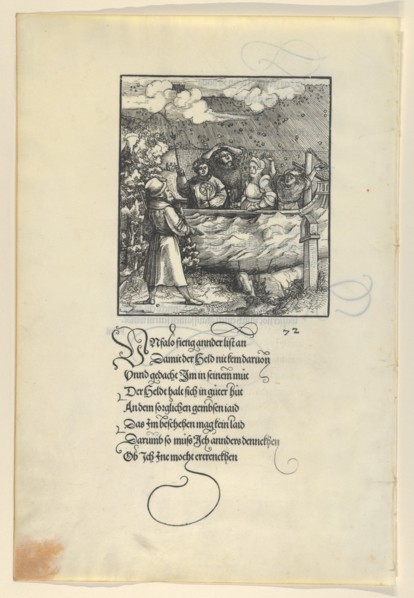 72
VNfalo fieng annder list an
Damit der Held nit kem daruon
Vnnd gedacht Jm in seinem mut
Der Heldt halt sich in guter hut
An dem sorglichen gembsen iaid
Das Jm beschehen mag kein laid
Darumb so muss Jch annders denncken
Ob Jch Jne mocht ertrencken